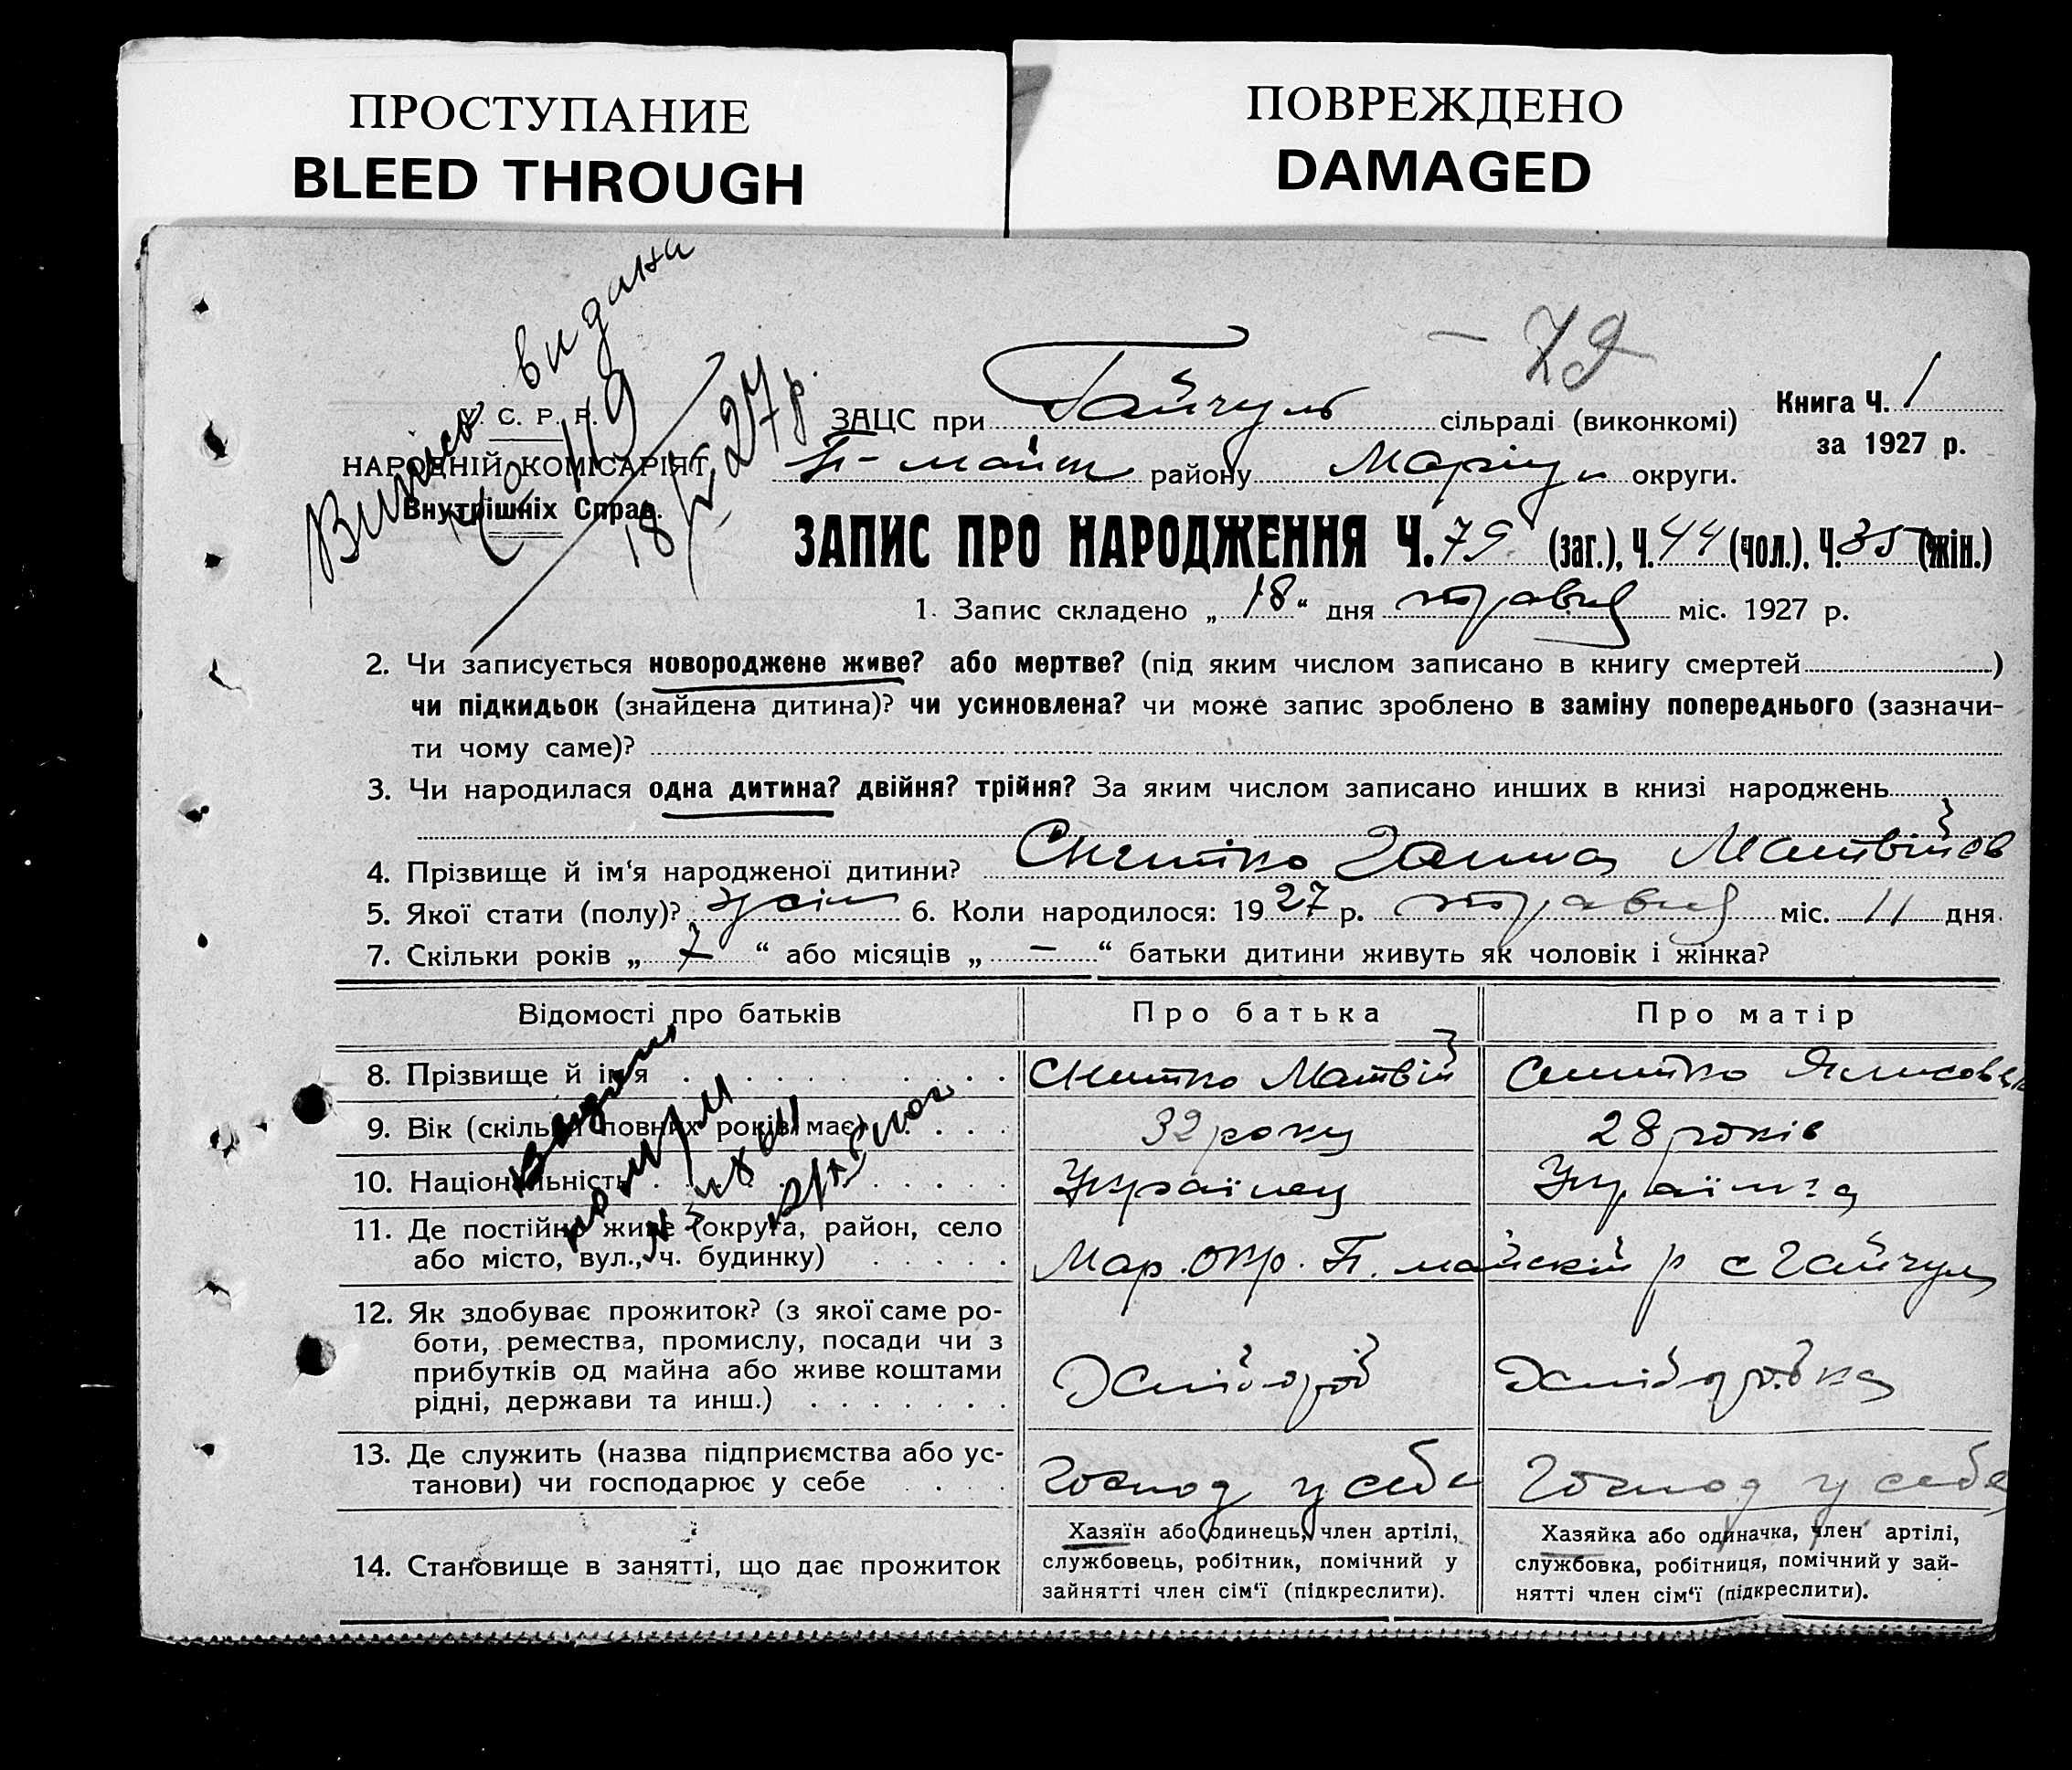 ПРОСТУПАНИЕ
BLEED THROUGH
ПОВРЕЖДЕНО
DAMAGED
Випись видана
№ 119
18/V 27 р.
79
У. С. Р. Р.
НАРОДНІЙ КОМІСАРІЯТ
Внутрішніх Справ.
ЗАЦС при Гайчуль сільраді (виконкомі)
П-майск району Маріуп округи.
Книга Ч. 1
за 1927 р.
ЗАПИС ПРО НАРОДЖЕННЯ Ч. 79 (заг.), Ч. 44 (чол.). Ч. 35 (жін.)
1. Запис складено „ 18 “ дня травня міс. 1927 р.
2. Чи записується новороджене живе? або мертве? (під яким числом записано в книгу смертей )
чи підкидьок (знайдена дитина)? чи усиновлена? чи може запис зроблено в заміну попереднього (зазначи-
ти чому саме)?
3. Чи народилася одна дитина? двійня? трійня? За яким числом записано инших в книзі народжень
4. Прізвище й ім‘я народженої дитини? Снитко Ганна Матвійов
5. Якої стати (полу)? жін 6. Коли народилося: 19 27 р. травня міс. 11 дня.
7. Скільки років „ 7 “ або місяців „ — “ батьки дитини живуть як чоловік і жінка?
Відомості про батьків
Про батька
Про матір
8. Прізвище й ім‘я
Снитко Матвій
Снитко
9. Вік (скільки повних років має)
32 року
28 років
10. Національність
Українец
Українка
11. Де постійно живе (округа, район, село
або місто, вул., ч. будинку)
Мар. окр. П. майскій р с Гайчул
12. Як здобуває прожиток? (з якої саме ро-
боти, ремества, промислу, посади чи з
прибутків од майна або живе коштами
рідні, держави та инш.)
Хлібороб
Хліборобка
13. Де служить (назва підприємства або ус-
танови) чи господарює у себе
Господ у себе
Господ у себе
14. Становище в занятті, що дає прожиток
Хазяїн або одинець, член артілі,
службовець, робітник, помічний у
зайнятті член сім‘ї (підкреслити).
Хазяйка або одиначка, член артілі,
службовка, робітниця, помічний у зай-
нятті член сім‘ї (підкреслити).